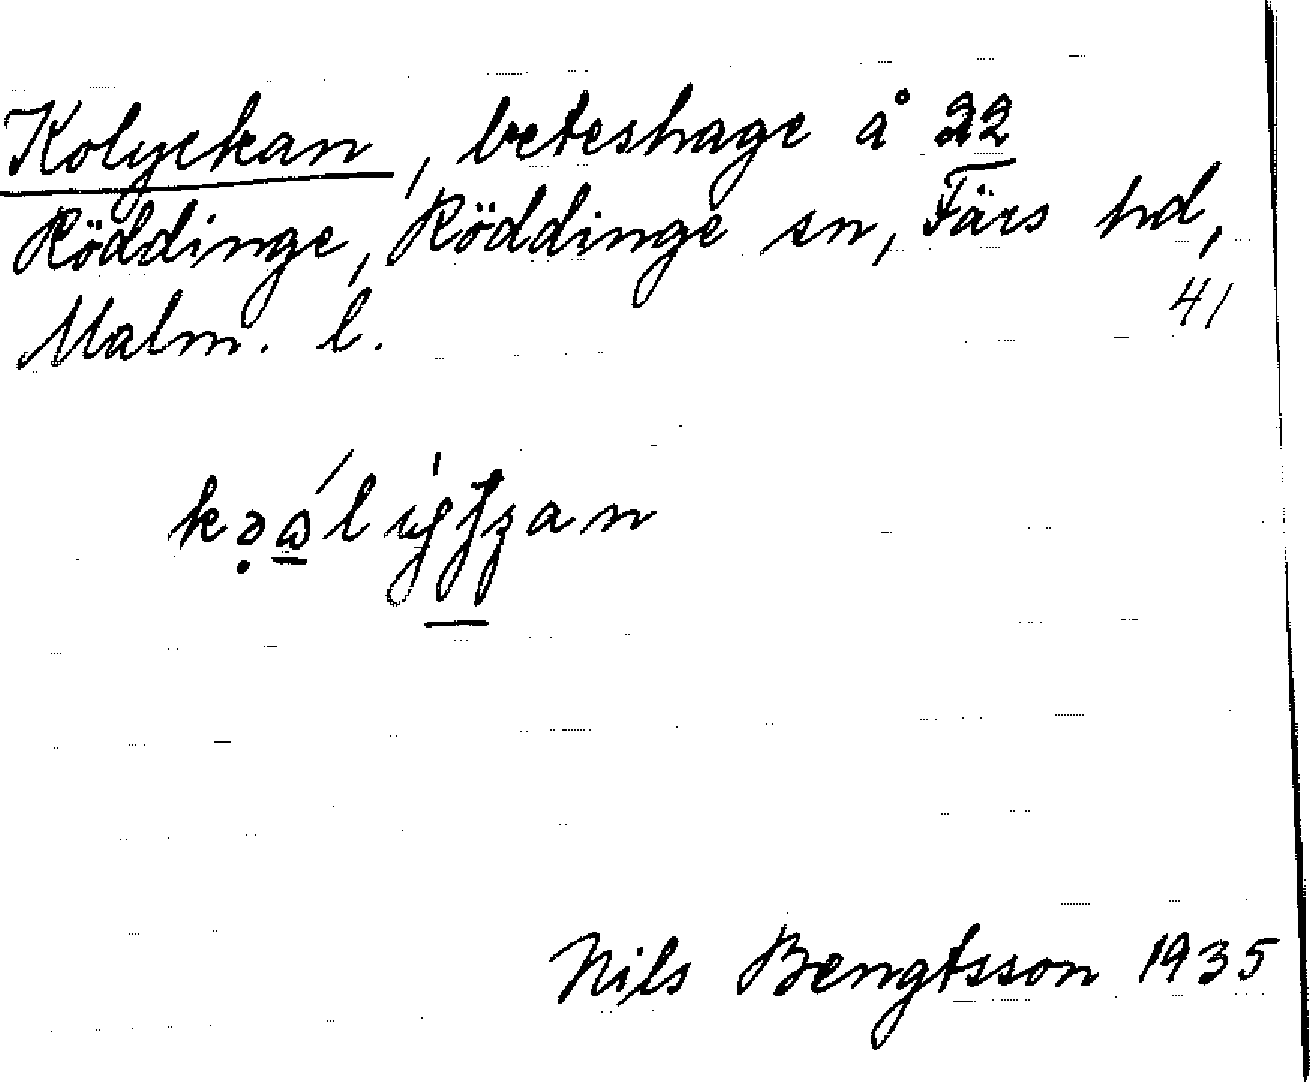 Kolyckan, beteshage å 22
Röddinge, Röddinge sn, Färs hd,
41
Malm. l.
Nils Bengtsson 1935